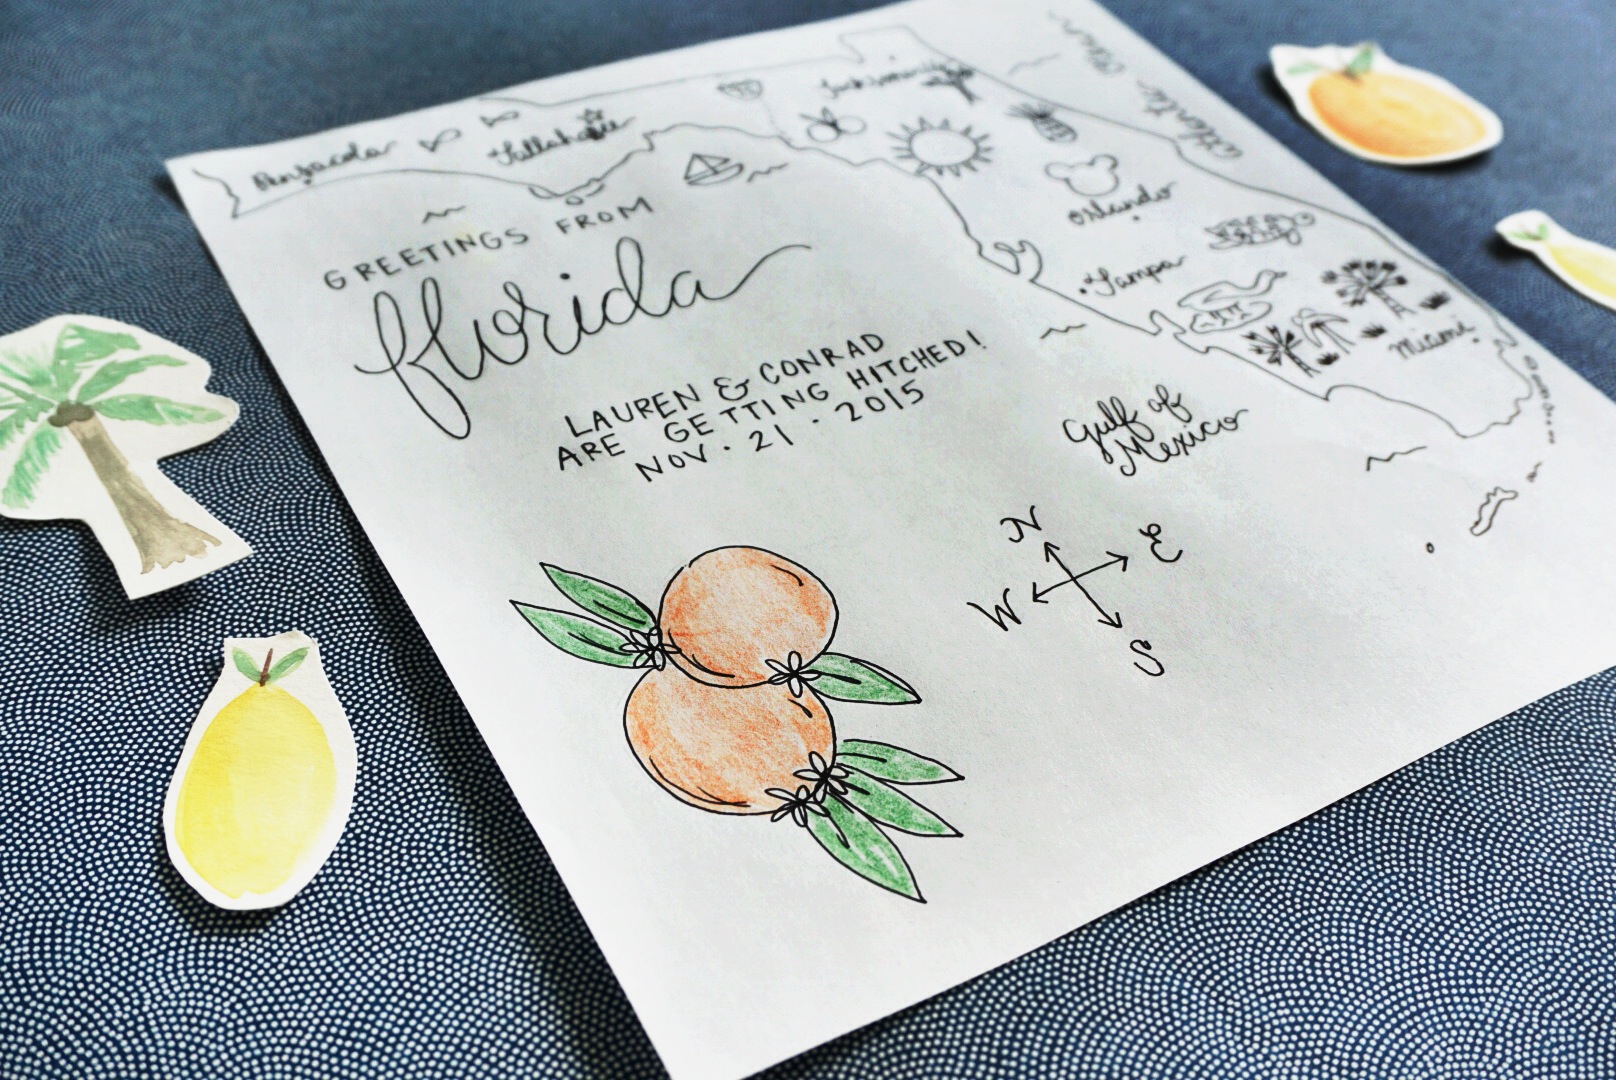 Pensacola
Tallahassee
Jacksonville
Atlantic Ocean
GREETINGS FROM
florida
Orlando
Tampa
Miami
LAUREN & CONRAD
ARE GETTING HITCHED!
NOV. 21 . 2015
Gulf of
Mexico
N
E
W
S